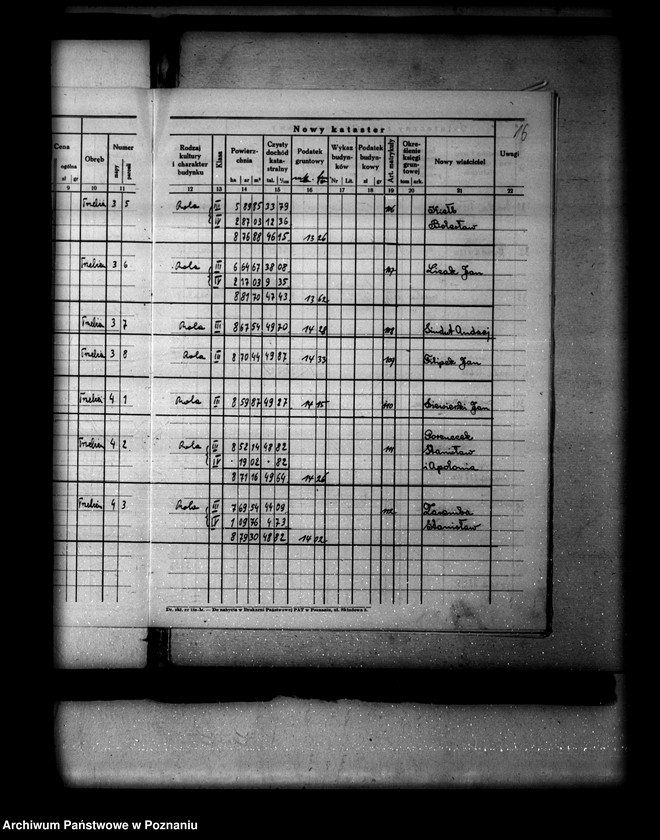 16
Nowy kataster
Cena
ogólna
zł gr
Obręb
Numer
mapy
parceli
Rodzaj kultury i charakter budynku
Klasa
Powierzchnia
ha ar m²
Czysty dochód katastralny
tal. 1/100
Podatek gruntowy
Wykaz budynków
Nr Lit.
Podatek budynkowy
zł gr
Art. matrykuły
Określenie księgi gruntowej
tom ark.
Nowy właściciel
Uwagi
9 10 11 12 13 14 15 16 17 18 19 20 21 22
3 5 Rola III 5 89 85 33 79 106
IV 2 87 03 12 36 Bolesław
8 76 88 46 15 13 26
3 6 Rola III 6 64 67 38 08 107 Lisak Jan
IV 2 17 03 9 35
8 81 70 47 43 13 62
3 7 Rola III 8 67 54 49 70 14 28 108 Andrzej
3 8 Rola III 8 70 44 49 87 14 33 109 Filipek Jan
4 1 Rola III 8 59 87 49 27 14 15 110 Jan
4 2 Rola III 8 52 14 48 82 111 Stanisław
IV - 19 02 - 82 i Apolonia
8 71 16 49 64 14 26
4 3 Rola III 7 69 54 44 09 112 Zaremba
IV 1 09 76 4 73 Stanisław
8 79 30 48 82 14 02
Do nabycia w Drukarni Państwowej PAT w Poznaniu, ul. Składowa
Archiwum Państwowe w Poznaniu